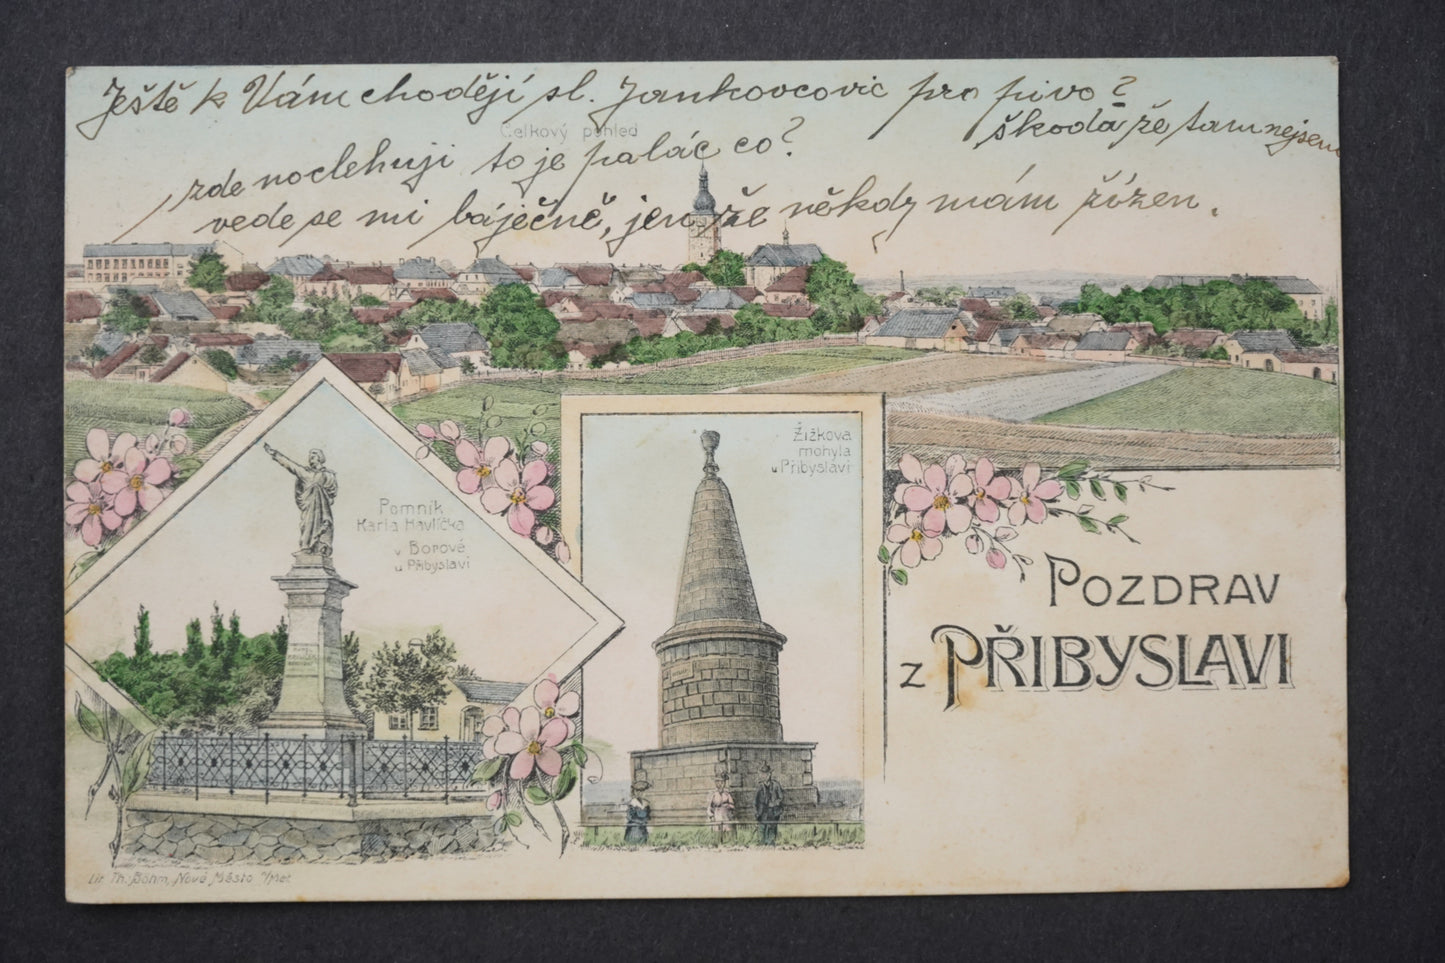 Ještě k Vám chodějí sl. Jankovcovic pro pivo?
škoda že tam nejsem
Celkový pohled
zde noclehuji to je palác co?
vede se mi báječně, jen že někdy mám žízen.
Žižkova
mohyla
u Přibyslavi
Pomník
Karla Havlíčka
v Borové
u Přibyslavi
POZDRAV
z PŘIBYSLAVI
Lit. Th. Böhm, Nové Město n/Met.